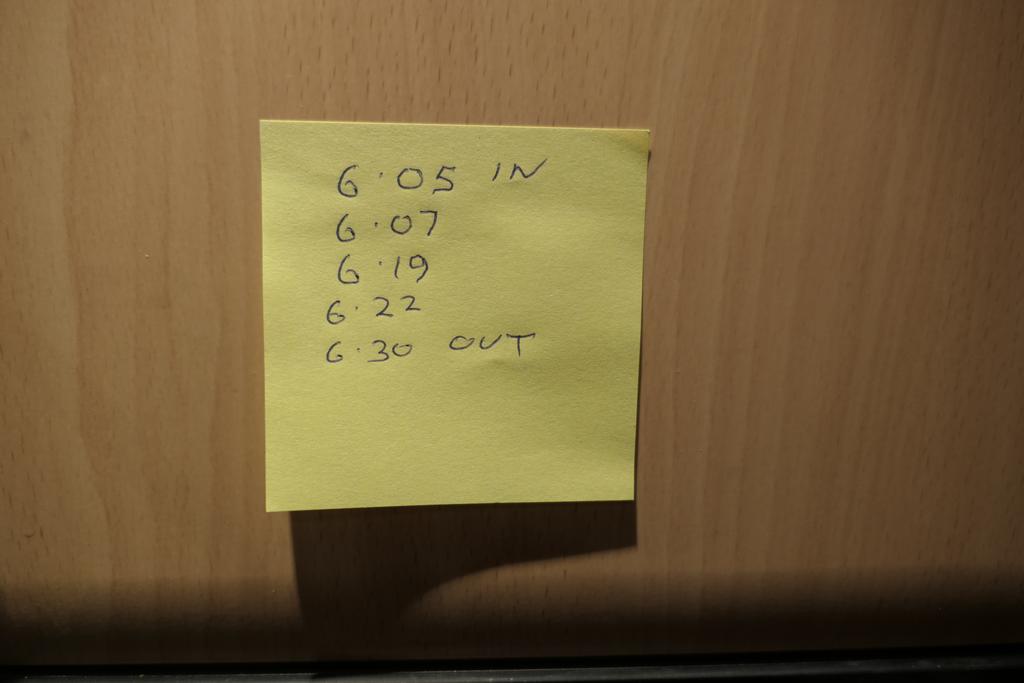 6·05 IN
6·07
6·19
6·22
6·30 OUT